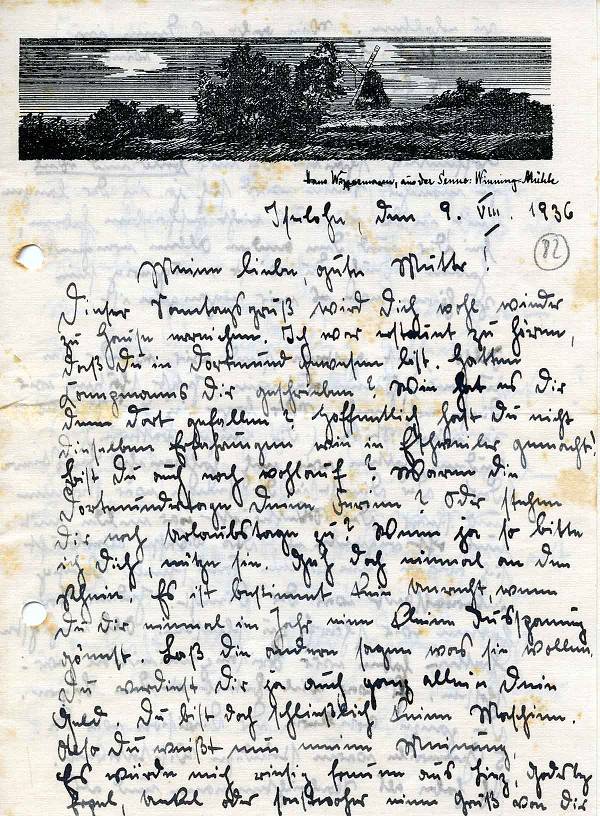 Hans Wappermann, aus der Senne: Winning-Mühle
Iserlohn, den 9. VIII. 1936
82
Meine liebe, gute Mutter!
Dieser Sonntagsgruß wird Dich wohl wieder
zu Hause erreichen. Ich war erstaunt zu hören,
daß Du in Dortmund gewesen bist. Hatten
Kampmanns Dir geschrieben? Wie hat es Dir
denn dort gefallen? Hoffentlich hast Du nicht
dieselben Erfahrungen wie in Eschweiler gemacht!
Bist Du auch noch wohlauf? Waren die
Dortmundertage Deine Ferien? Oder stehen
Dir noch Urlaubstage zu? Wenn ja so bitte
ich Dich, nütze sie. Geh doch einmal an den
Rhein. Es ist bestimmt kein Unrecht, wenn
Du Dir einmal im Jahr eine kleine Ausspannung
gönnst. Laß die anderen sagen was sie wollen.
Du verdienst Dir ja auch ganz allein Dein
Geld. Du bist doch schließlich keine Maschine.
Also Du weißt nun meine Meinung.
Es würde mich riesig freuen aus
oder sonstwoher einen Gruß von Dir